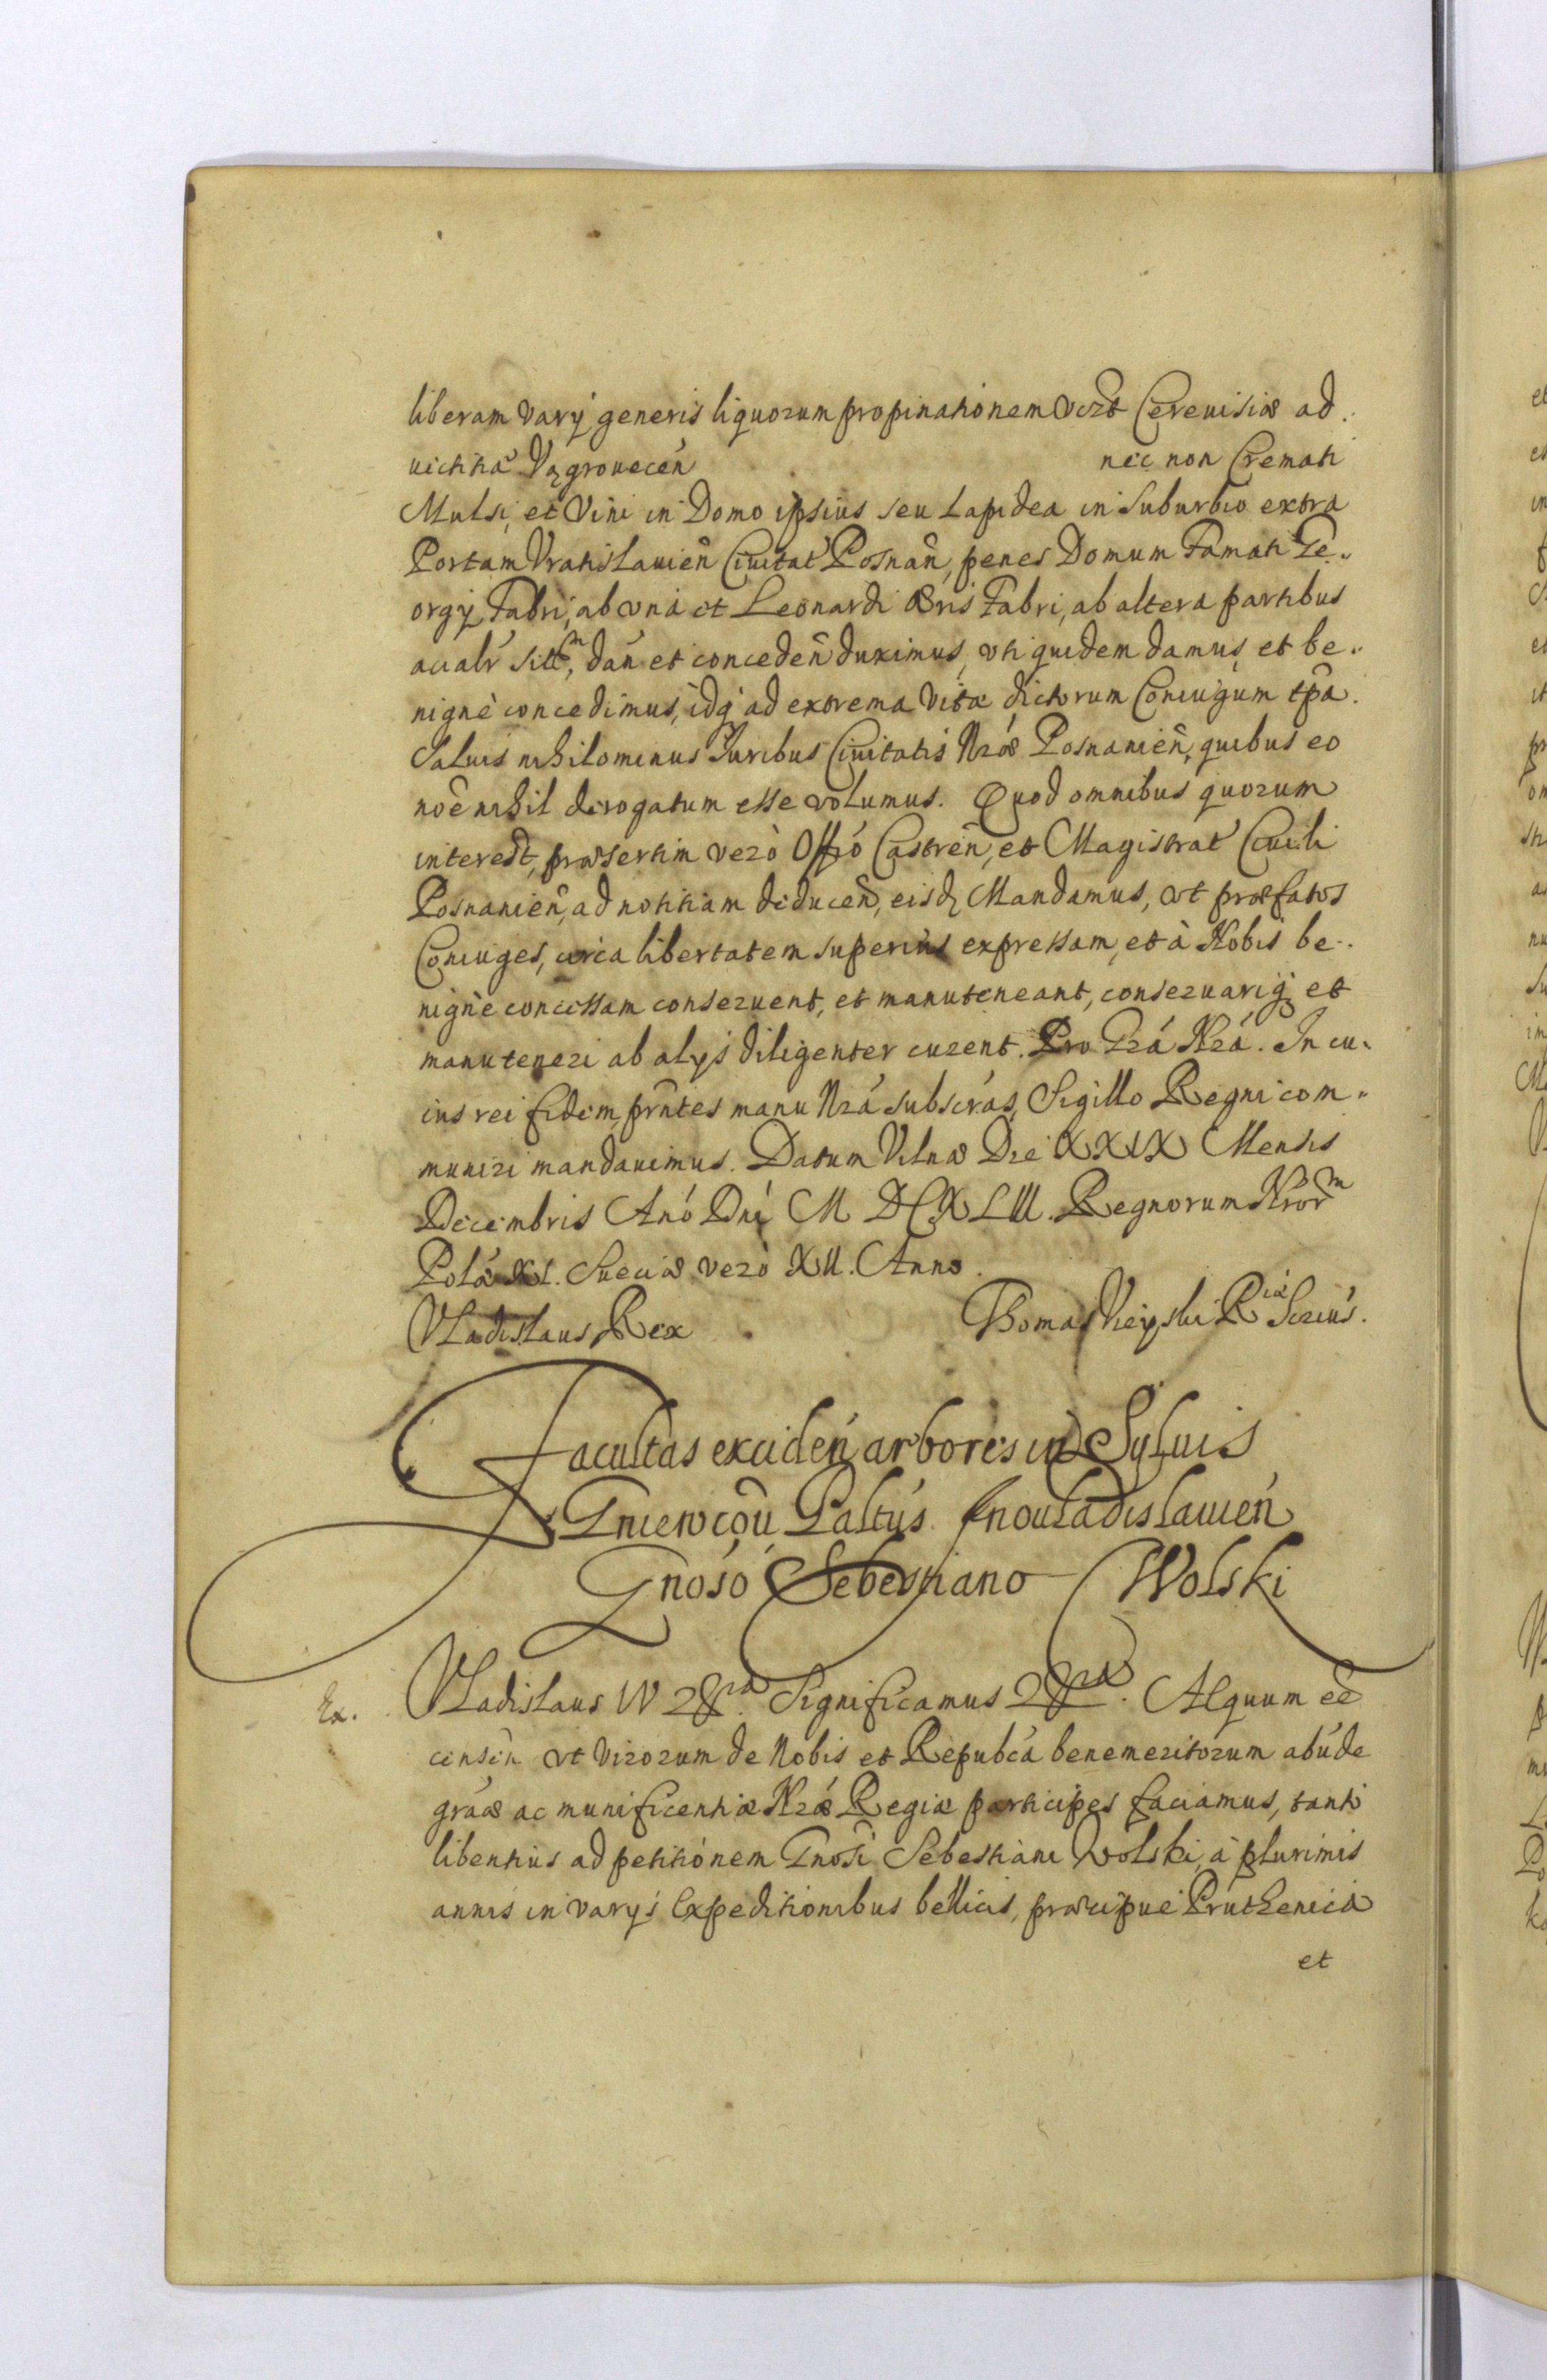 liberam varÿ generis liquorum propinationem vizt Cereuisiæ ad.
uectitiæ Vągrouecen̄ nec non Cremati
Mulsi, et Vini in Domo ipsius seu Lapidea in Suburbio extra
Portam Vratislauien̄ Ciuitat Posnan̄, penes Domum Famati Ge..
orgÿ Fabri, ab vna et Leonardi Æris Fabri, ab altera partibus
dan̄ et conceden̄ duximus, vti quidem damus, et be..
nignè concedimus, idq ad extrema vitæ dictorum Coniugum tp̄a.
Saluis nihilominus Iuribus Ciuitatis Nr̄æ Posnanien̄, quibus eo
noē nihil derogatum esse volumus. Quod omnibus quorum
interest, præsertim verò Offō Castren̄, et Magistrat Ciuili
Posnanien̄, ad notitiam deducen̄, eisdꝫ Mandamus, vt præfatos
Coniuges, circa libertatem superius expressam, et à Nobis be..
nignè concessam conseruent, et manuteneant, conseruariqꝫ et
manuteneri ab alÿs diligenter curent. Pro Gr̄a Nr̄a. In cu.
ius rei fidem, prn̄tes manu Nr̄a subscr̄as, Sigillo Regni com..
muniri mandauimus. Datum Vilnæ Die XXIX Mensis
Decembris Anō Dn̄i M DC XLIII. Regnorum Nror̄m
Polæ XI. Sueciæ verò XII. Anno.
Vladislaus Rex Thomas Vieyski R iæ Scrius.
Facultas exciden̄ arbores in Syluis
Gniewcou Paltūs Inouladislauien̄
Gnōso Sebestiano Wolski
Ex. Vladislaus IV Significamus Æquum eē
censen̄ vt virorum de Nobis et Repubca benemeritorum abūde
grāæ ac munificentiæ Nr̄æ Regiæ participes faciamus, tanto
libentius ad petitionem Gnosi Sebestiani Wolski, à plurimis
annis in varÿs Expeditionibus bellicis, præcipuè Pruthenica
et